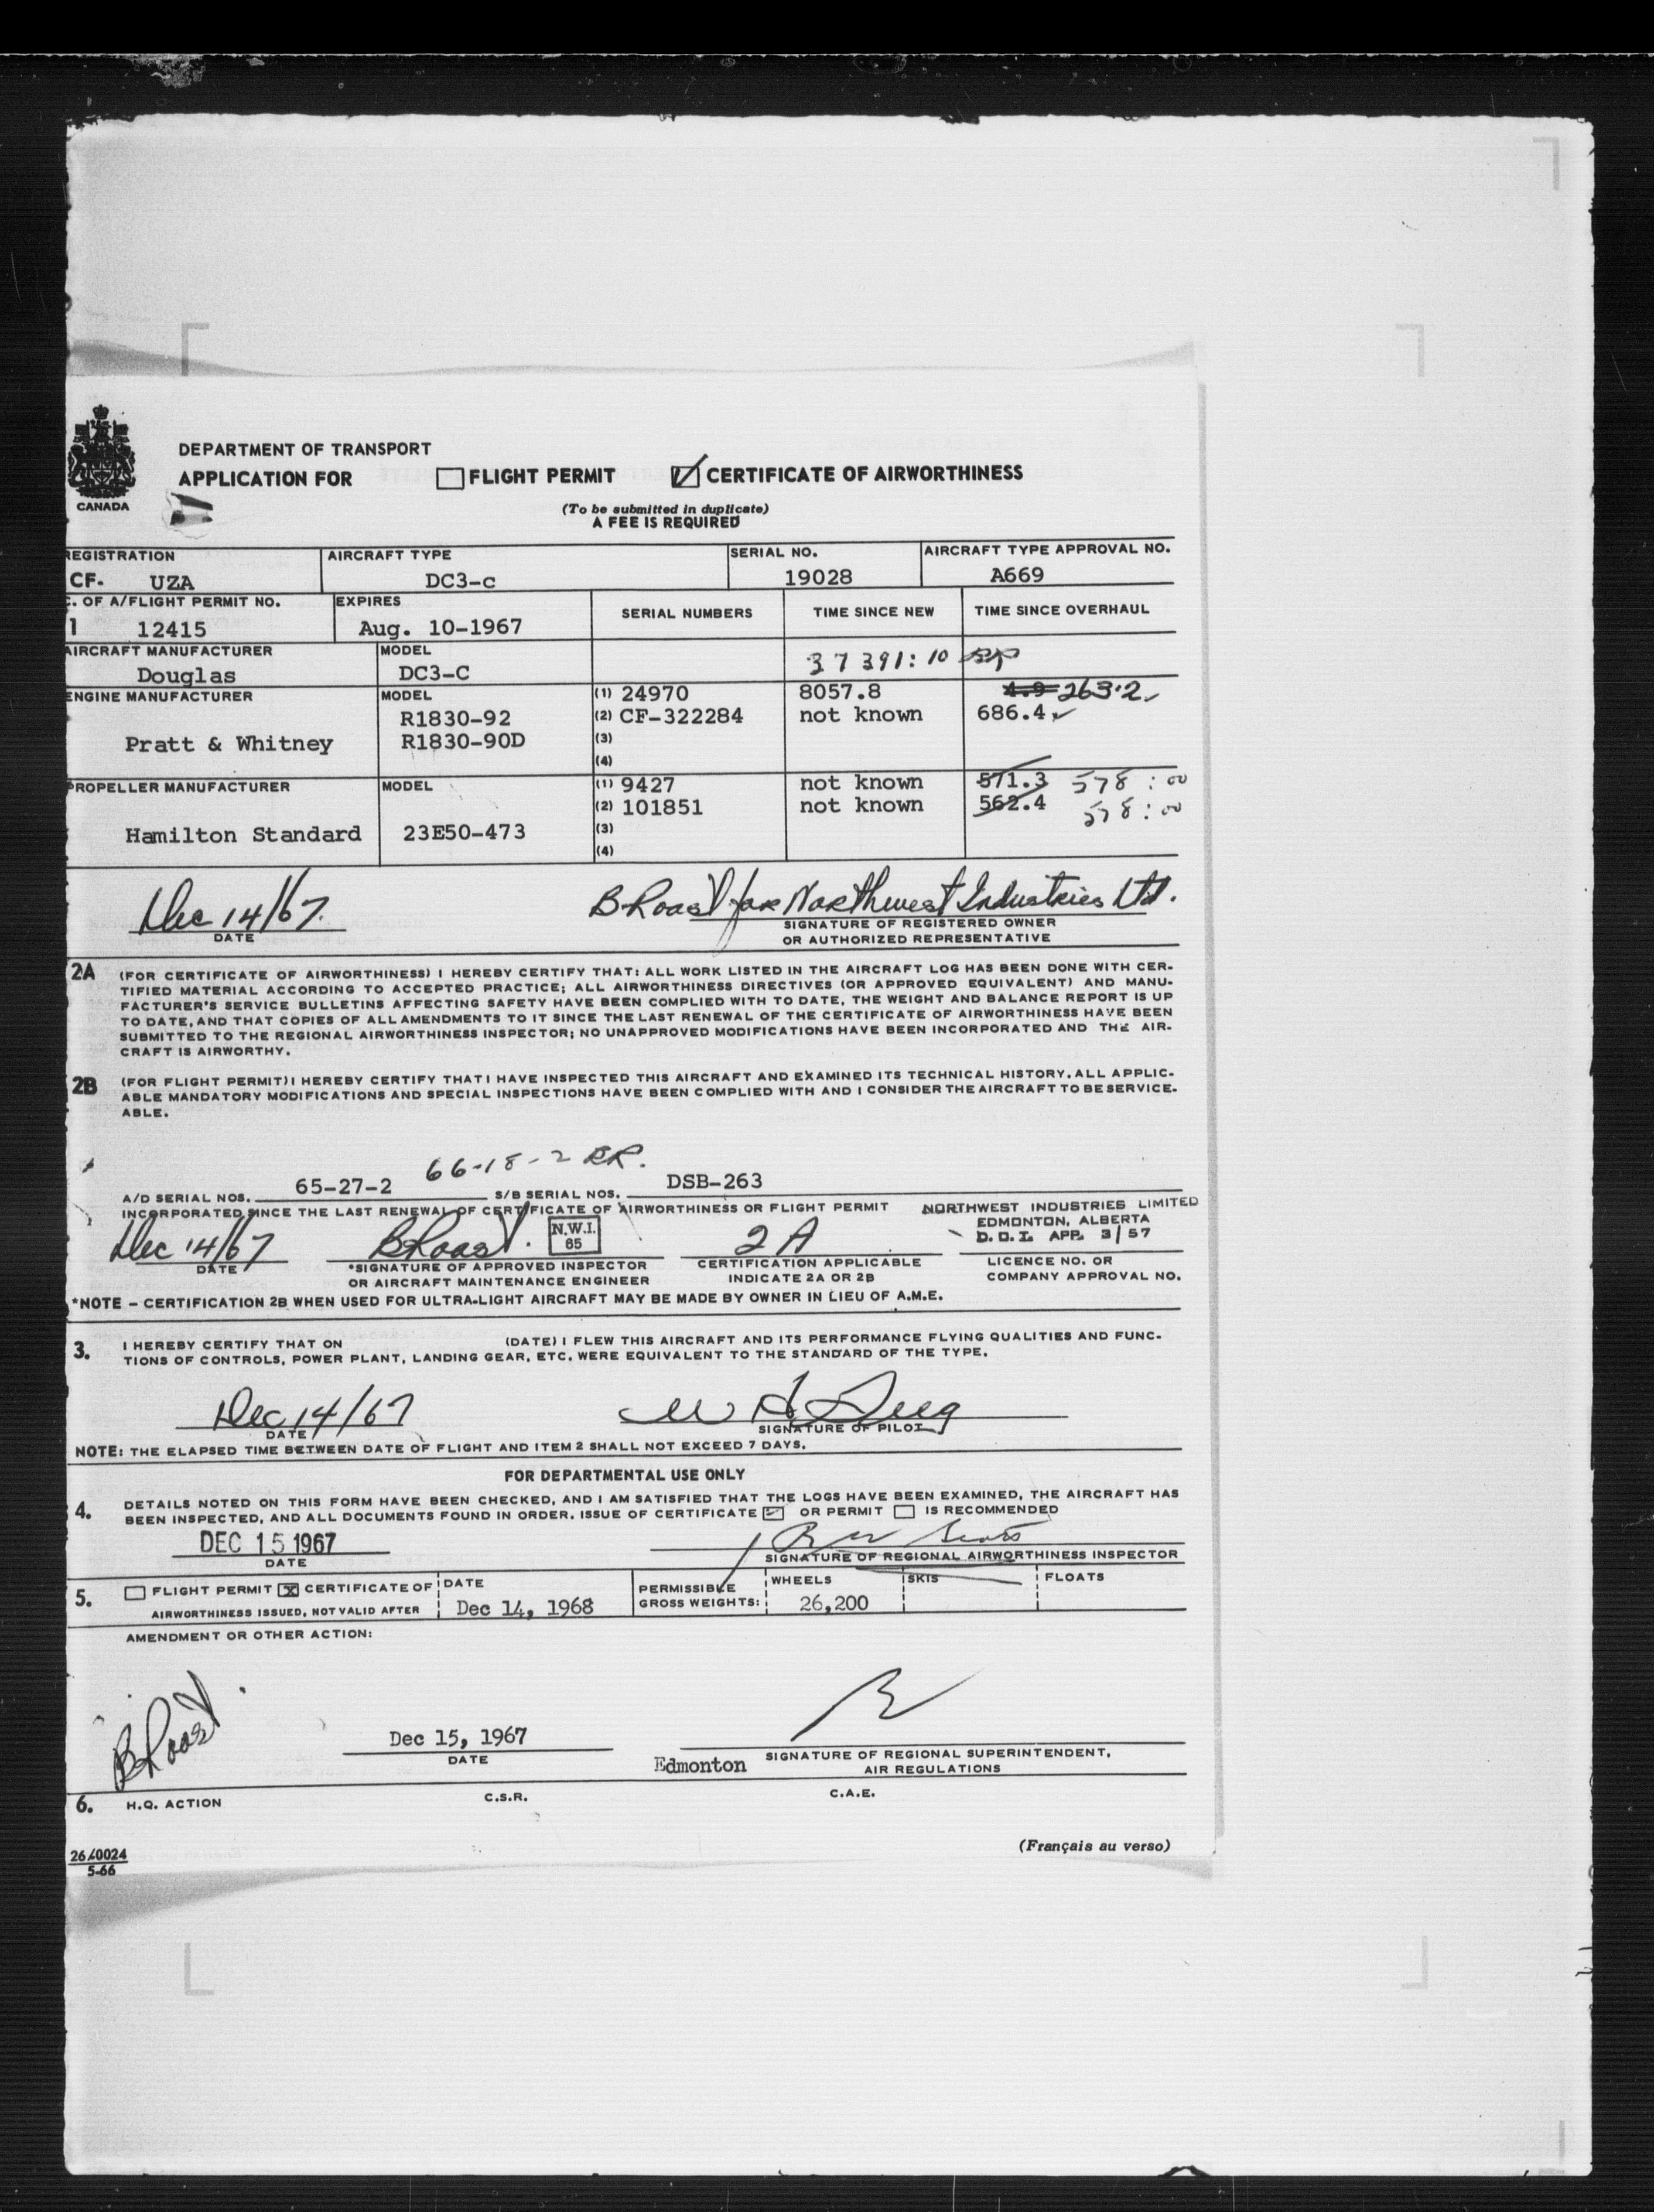 DEPARTMENT OF TRANSPORT
APPLICATION FOR FLIGHT PERMIT CERTIFICATE OF AIRWORTHINESS
CANADA
(To be submitted in duplicate)
A FEE IS REQUIRED
REGISTRATION AIRCRAFT TYPE SERIAL NO. AIRCRAFT TYPE APPROVAL NO.
CF. UZA DC3-c 19028 A669
C. OF A/FLIGHT PERMIT NO. EXPIRES SERIAL NUMBERS TIME SINCE NEW TIME SINCE OVERHAUL
1 12415 Aug. 10-1967
AIRCRAFT MANUFACTURER MODEL
Douglas DC3-C 37391:10
ENGINE MANUFACTURER MODEL (1) 24970 8057.8 4.9 263.2
R1830-92 (2) CF-322284 not known 686.4
Pratt & Whitney R1830-90D (3)
(4)
PROPELLER MANUFACTURER MODEL (1) 9427 not known 571.3 578:00
(2) 101851 not known 562.4 578:00
Hamilton Standard 23E50-473 (3)
(4)
Dec 14/67. B Roast for Northwest Industries Ltd.
DATE SIGNATURE OF REGISTERED OWNER
OR AUTHORIZED REPRESENTATIVE
2A (FOR CERTIFICATE OF AIRWORTHINESS) I HEREBY CERTIFY THAT: ALL WORK LISTED IN THE AIRCRAFT LOG HAS BEEN DONE WITH CER-
TIFIED MATERIAL ACCORDING TO ACCEPTED PRACTICE; ALL AIRWORTHINESS DIRECTIVES (OR APPROVED EQUIVALENT) AND MANU-
FACTURER'S SERVICE BULLETINS AFFECTING SAFETY HAVE BEEN COMPLIED WITH TO DATE, THE WEIGHT AND BALANCE REPORT IS UP
TO DATE, AND THAT COPIES OF ALL AMENDMENTS TO IT SINCE THE LAST RENEWAL OF THE CERTIFICATE OF AIRWORTHINESS HAVE BEEN
SUBMITTED TO THE REGIONAL AIRWORTHINESS INSPECTOR; NO UNAPPROVED MODIFICATIONS HAVE BEEN INCORPORATED AND THE AIR-
CRAFT IS AIRWORTHY.
2B (FOR FLIGHT PERMIT) I HEREBY CERTIFY THAT I HAVE INSPECTED THIS AIRCRAFT AND EXAMINED ITS TECHNICAL HISTORY. ALL APPLIC-
ABLE MANDATORY MODIFICATIONS AND SPECIAL INSPECTIONS HAVE BEEN COMPLIED WITH AND I CONSIDER THE AIRCRAFT TO BE SERVICE-
ABLE.
66-18-2 RR.
A/D SERIAL NOS. 65-27-2 S/B SERIAL NOS. DSB-263
INCORPORATED SINCE THE LAST RENEWAL OF CERTIFICATE OF AIRWORTHINESS OR FLIGHT PERMIT NORTHWEST INDUSTRIES LIMITED
EDMONTON, ALBERTA
Dec 14/67 B Roast. N.W.I. 65 2A D.O.I. APP. 3/57
DATE *SIGNATURE OF APPROVED INSPECTOR CERTIFICATION APPLICABLE LICENCE NO. OR
OR AIRCRAFT MAINTENANCE ENGINEER INDICATE 2A OR 2B COMPANY APPROVAL NO.
*NOTE – CERTIFICATION 2B WHEN USED FOR ULTRA-LIGHT AIRCRAFT MAY BE MADE BY OWNER IN LIEU OF A.M.E.
3. I HEREBY CERTIFY THAT ON (DATE) I FLEW THIS AIRCRAFT AND ITS PERFORMANCE FLYING QUALITIES AND FUNC-
TIONS OF CONTROLS, POWER PLANT, LANDING GEAR, ETC. WERE EQUIVALENT TO THE STANDARD OF THE TYPE.
Dec 14/67
DATE SIGNATURE OF PILOT
NOTE: THE ELAPSED TIME BETWEEN DATE OF FLIGHT AND ITEM 2 SHALL NOT EXCEED 7 DAYS.
FOR DEPARTMENTAL USE ONLY
4. DETAILS NOTED ON THIS FORM HAVE BEEN CHECKED, AND I AM SATISFIED THAT THE LOGS HAVE BEEN EXAMINED, THE AIRCRAFT HAS
BEEN INSPECTED, AND ALL DOCUMENTS FOUND IN ORDER. ISSUE OF CERTIFICATE OR PERMIT IS RECOMMENDED
DEC 15 1967
DATE SIGNATURE OF REGIONAL AIRWORTHINESS INSPECTOR
5. FLIGHT PERMIT X CERTIFICATE OF DATE PERMISSIBLE WHEELS SKIS FLOATS
AIRWORTHINESS ISSUED, NOT VALID AFTER Dec 14, 1968 GROSS WEIGHTS: 26,200
AMENDMENT OR OTHER ACTION:
B Roast.
Dec 15, 1967
DATE Edmonton SIGNATURE OF REGIONAL SUPERINTENDENT,
AIR REGULATIONS
6. H.Q. ACTION C.S.R. C.A.E.
(Français au verso)
26-0024
5-66